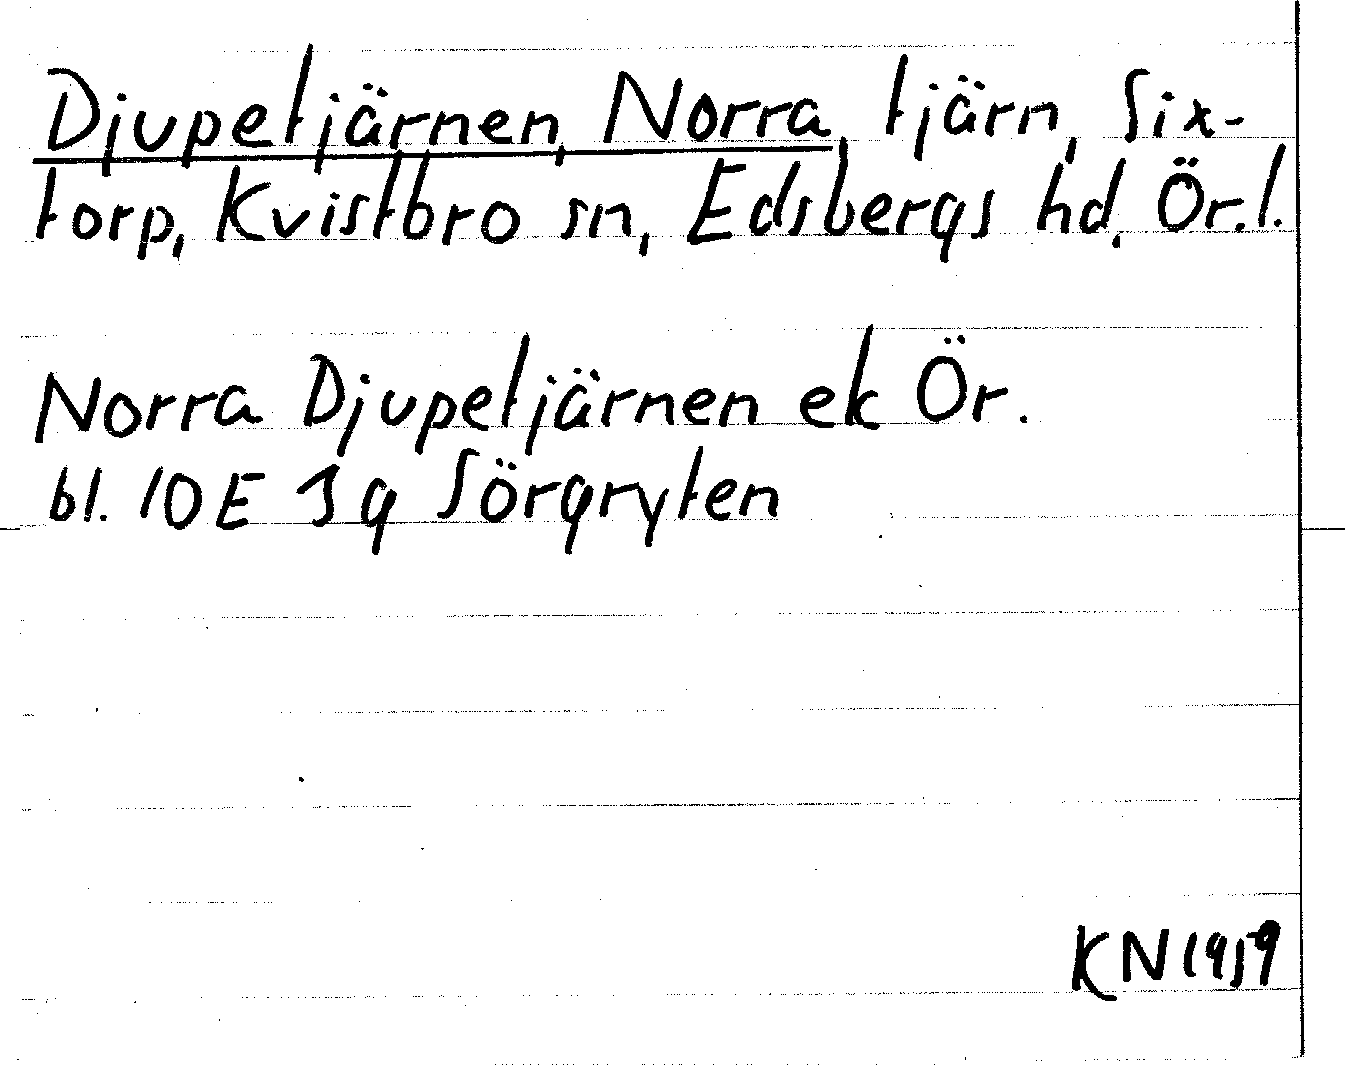 Djupetjärnen, Norra, tjärn, Six-
torp, Kvistbro sn, Edsbergs hd, Ör.l.
Norra Djupetjärnen ek Ör.
bl. 10E 1g Sörgryten
KN 1959